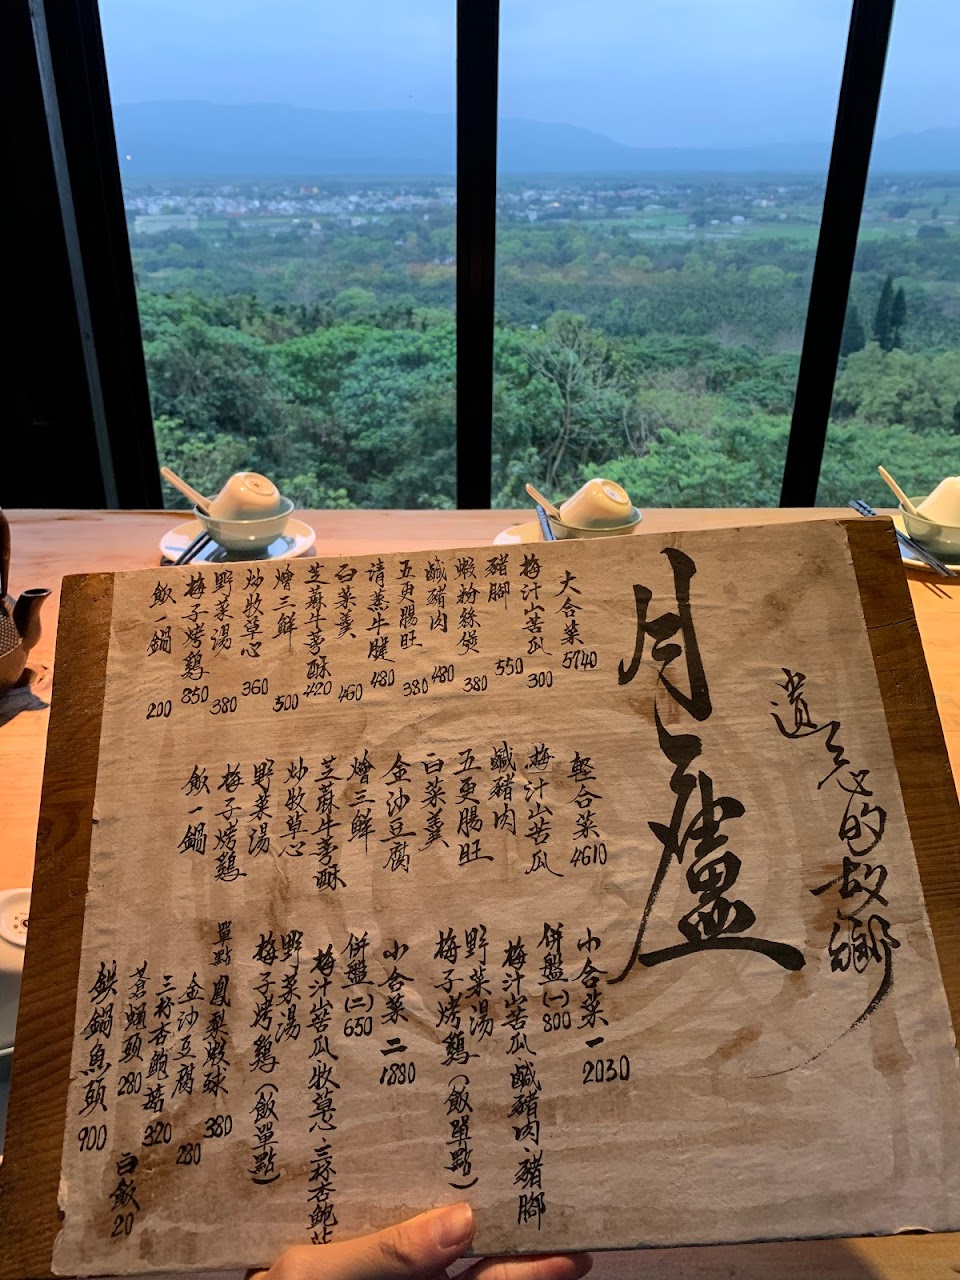 月廬
遺忘的故鄉
大合菜 5740
梅汁山苦瓜 300
豬腳 550
蝦粉絲煲 380
鹹豬肉 480
五更腸旺 380
清蒸牛腱 480
白菜羹 460
芝蔴牛蒡酥 420
燴三鮮 500
炒牧草心 360
野菜湯 380
梅子烤鷄 850
飯一鍋 200
輕合菜 4610
梅汁山苦瓜
鹹豬肉
五更腸旺
白菜羹
金沙豆腐
燴三鮮
芝蔴牛蒡酥
炒牧草心
野菜湯
梅子烤鷄
飯一鍋
小合菜一 2030
併盤(一) 800
梅汁山苦瓜、鹹豬肉、豬腳
野菜湯
梅子烤鷄(飯單點)
小合菜二 1880
併盤(二) 650
梅汁山苦瓜、牧草心、三杯杏鮑菇
野菜湯
梅子烤鷄(飯單點)
單點
鳳梨蝦球 380
金沙豆腐 280
三杯杏鮑菇 320
蒼蠅頭 280
白飯 20
鉄鍋魚頭 900